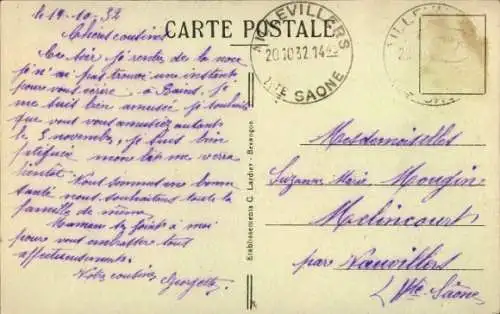 le 19-10-32
Chères cousines
Ce soir je rentre de la noce
je n'ai pas trouvé une instante
pour vous écrire à Bains, je
me suis bien amusée je souhaite
que vous vous amusiez autant
le 3 novembre, je suis bien
fatiguée même
bientôt Nous sommes en bonne
santé nous souhaitons toute la
famille de même.
Maman se joint à moi
pour vous embrasser tout
affectueusement.
Votre cousine Georgette
CARTE POSTALE
VILLEVILLERS
20.10.32 14
HTE SAONE
Etablissements C. Lardier - Besançon
Mesdemoiselles
Suzanne Marie Mougin
Melincourt
par Vauvillers
Hte Saône